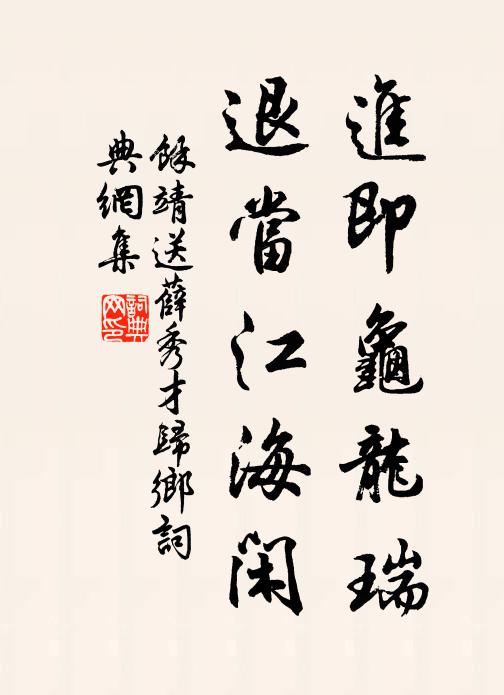 進即龜龍瑞
退當江海閑
餘靖送薛秀才歸鄉詞
典網集
詞典
网印